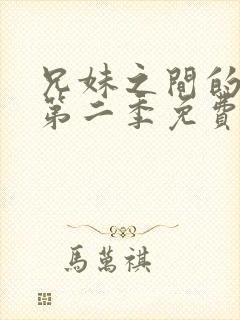 兄妹之間的
第二季免費
馬萬祺